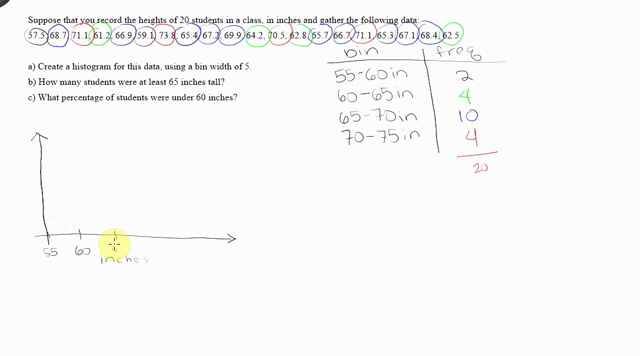 Suppose that you record the heights of 20 students in a class, in inches and gather the following data:
57.5, 68.7, 71.1, 61.2, 66.9, 59.1, 73.8, 65.4, 67.2, 69.9, 64.2, 70.5, 62.8, 65.7, 66.7, 71.1, 65.3, 67.1, 68.4, 62.5
bin freq
a) Create a histogram for this data, using a bin width of 5.
55-60in 2
b) How many students were at least 65 inches tall?
60-65in 4
c) What percentage of students were under 60 inches?
65-70in 10
70-75in 4
20
55 60
inches